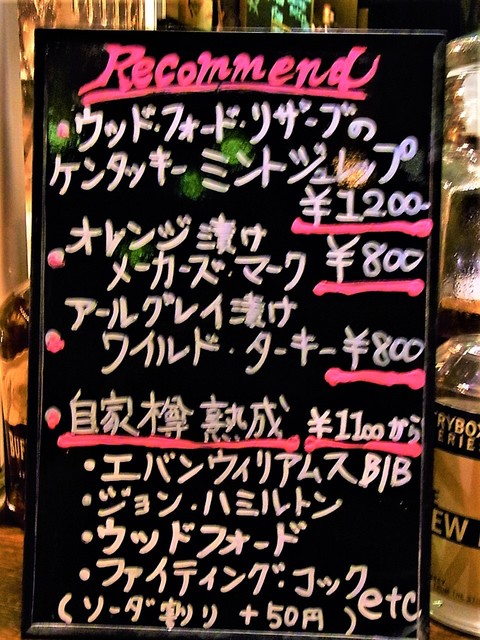 Recommend
・ウッド・フォード・リザーブの
ケンタッキー ミントジュレップ
¥1200-
・オレンジ漬け
メーカーズ・マーク ¥800
・アールグレイ漬け
ワイルド・ターキー ¥800
・自家樽熟成 ¥1100から
・エバンウィリアムス B/B
・ジョン・ハミルトン
・ウッドフォード
・ファイティング・コック etc
(ソーダ割り +50円)
RYBOX
ERIE
EW